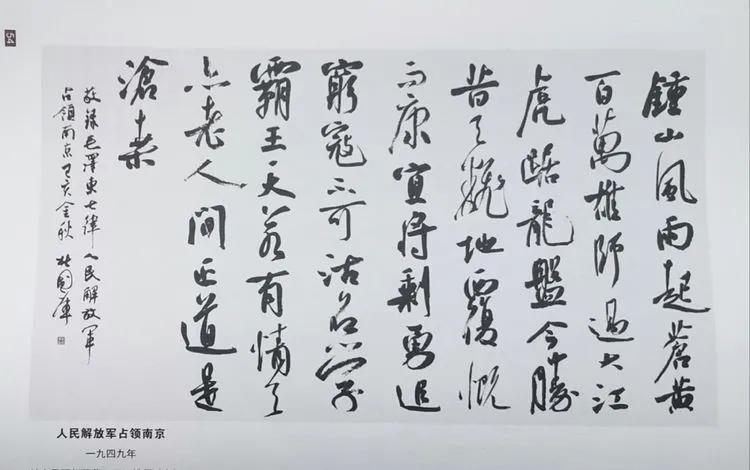 鍾山風雨起蒼黄
百萬雄師過大江
虎踞龍盤今勝
昔天翻地覆慨
而康宜将剩勇追
窮寇不可沽名學
霸王天若有情天
亦老人間正道是
滄桑
敬録毛澤東七律人民解放軍
占領南京己亥金秋
人民解放军占领南京
一九四九年